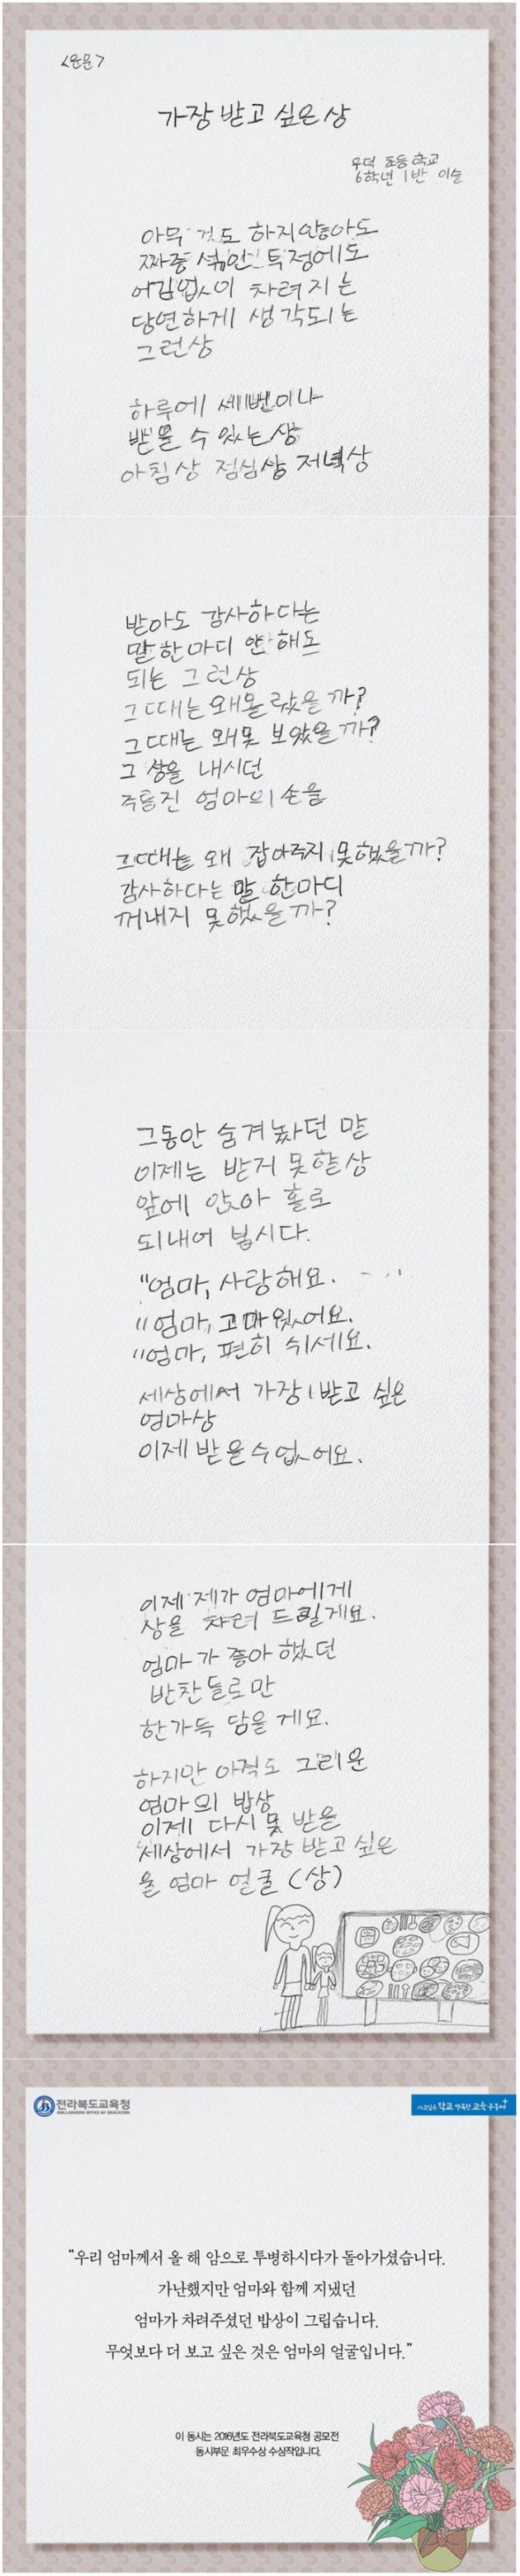 <운문>
가장 받고 싶은 상
우덕 초등학교
6학년 1반 이슬
아무 것도 하지 않아도
짜증 섞인 투정에도
어김없이 차려지는
당연하게 생각되는
그런상
하루에 세번이나
받을 수 있는 상
아침상 점심상 저녁상
받아도 감사하다는
말 한마디 안 해도
되는 그런상
그때는 왜 몰랐을까?
그때는 왜 못 보았을까?
그 상을 내시던
주름진 엄마의 손을
그때는 왜 잡아주지 못했을까?
감사하다는 말 한마디
꺼내지 못했을까?
그동안 숨겨놨던 말
이제는 받지 못할 상
앞에 앉아 홀로
되내어 봅시다.
"엄마, 사랑해요.
"엄마, 고마웠어요.
"엄마, 편히 쉬세요.
세상에서 가장 받고 싶은
엄마상
이제 받을수 없어요.
이제 제가 엄마에게
상을 차려 드릴게요.
엄마가 좋아했던
반찬들로만
한가득 담을게요.
하지만 아직도 그리운
엄마의 밥상
이제 다시 못 받을
세상에서 가장 받고 싶은
울 엄마 얼굴 (상)
전라북도교육청
"우리 엄마께서 올 해 암으로 투병하시다가 돌아가셨습니다.
가난했지만 엄마와 함께 지냈던
엄마가 차려주셨던 밥상이 그립습니다.
무엇보다 더 보고 싶은 것은 엄마의 얼굴입니다."
이 동시는 2016년도 전라북도교육청 공모전
동시부문 최우수상 수상작입니다.